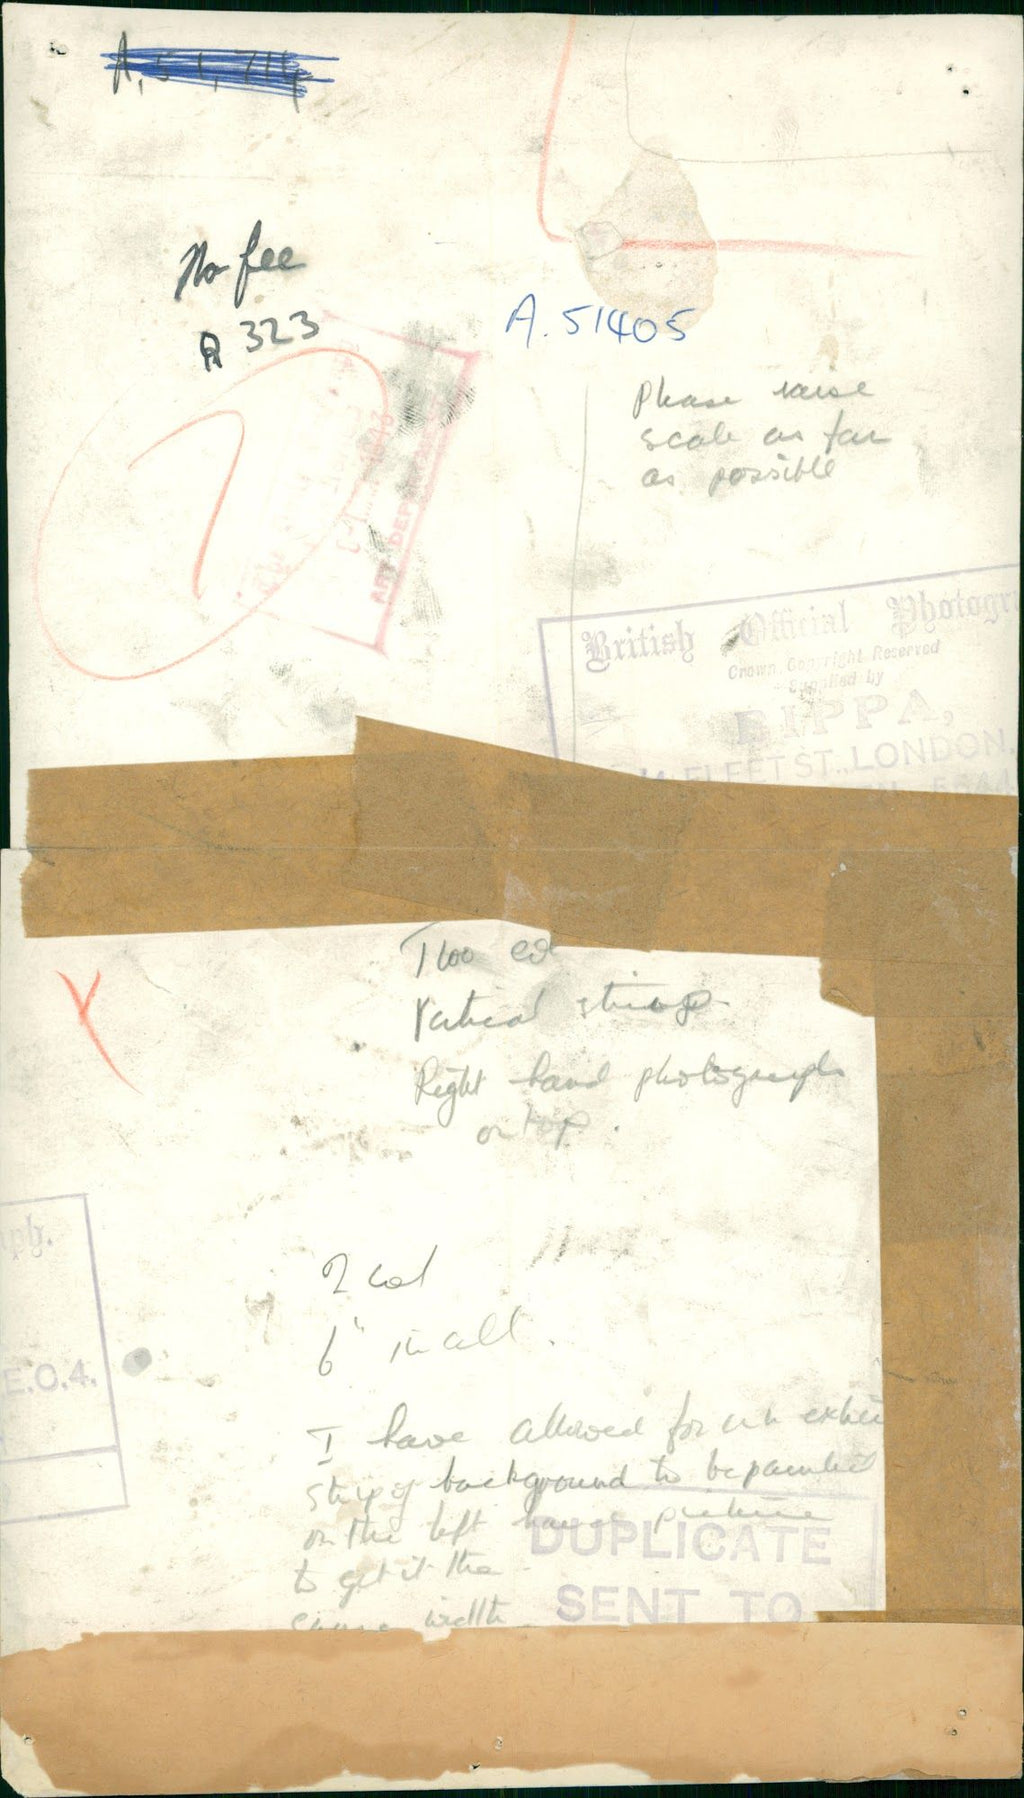 No fee
R 323
A. 51405
Please raise
scale as far
as possible
ART DEPARTMENT
British Official Photogr
Crown Copyright Reserved
Supplied by
BIPPA,
FLEET ST., LONDON,
Two col
Vertical strip
Right hand photograph
on top.
2 col
6" in all.
I have allowed for an extra
strip of background to be painted
on the left hand picture
to get it the
same width
ph.
E.C.4.
DUPLICATE
SENT TO